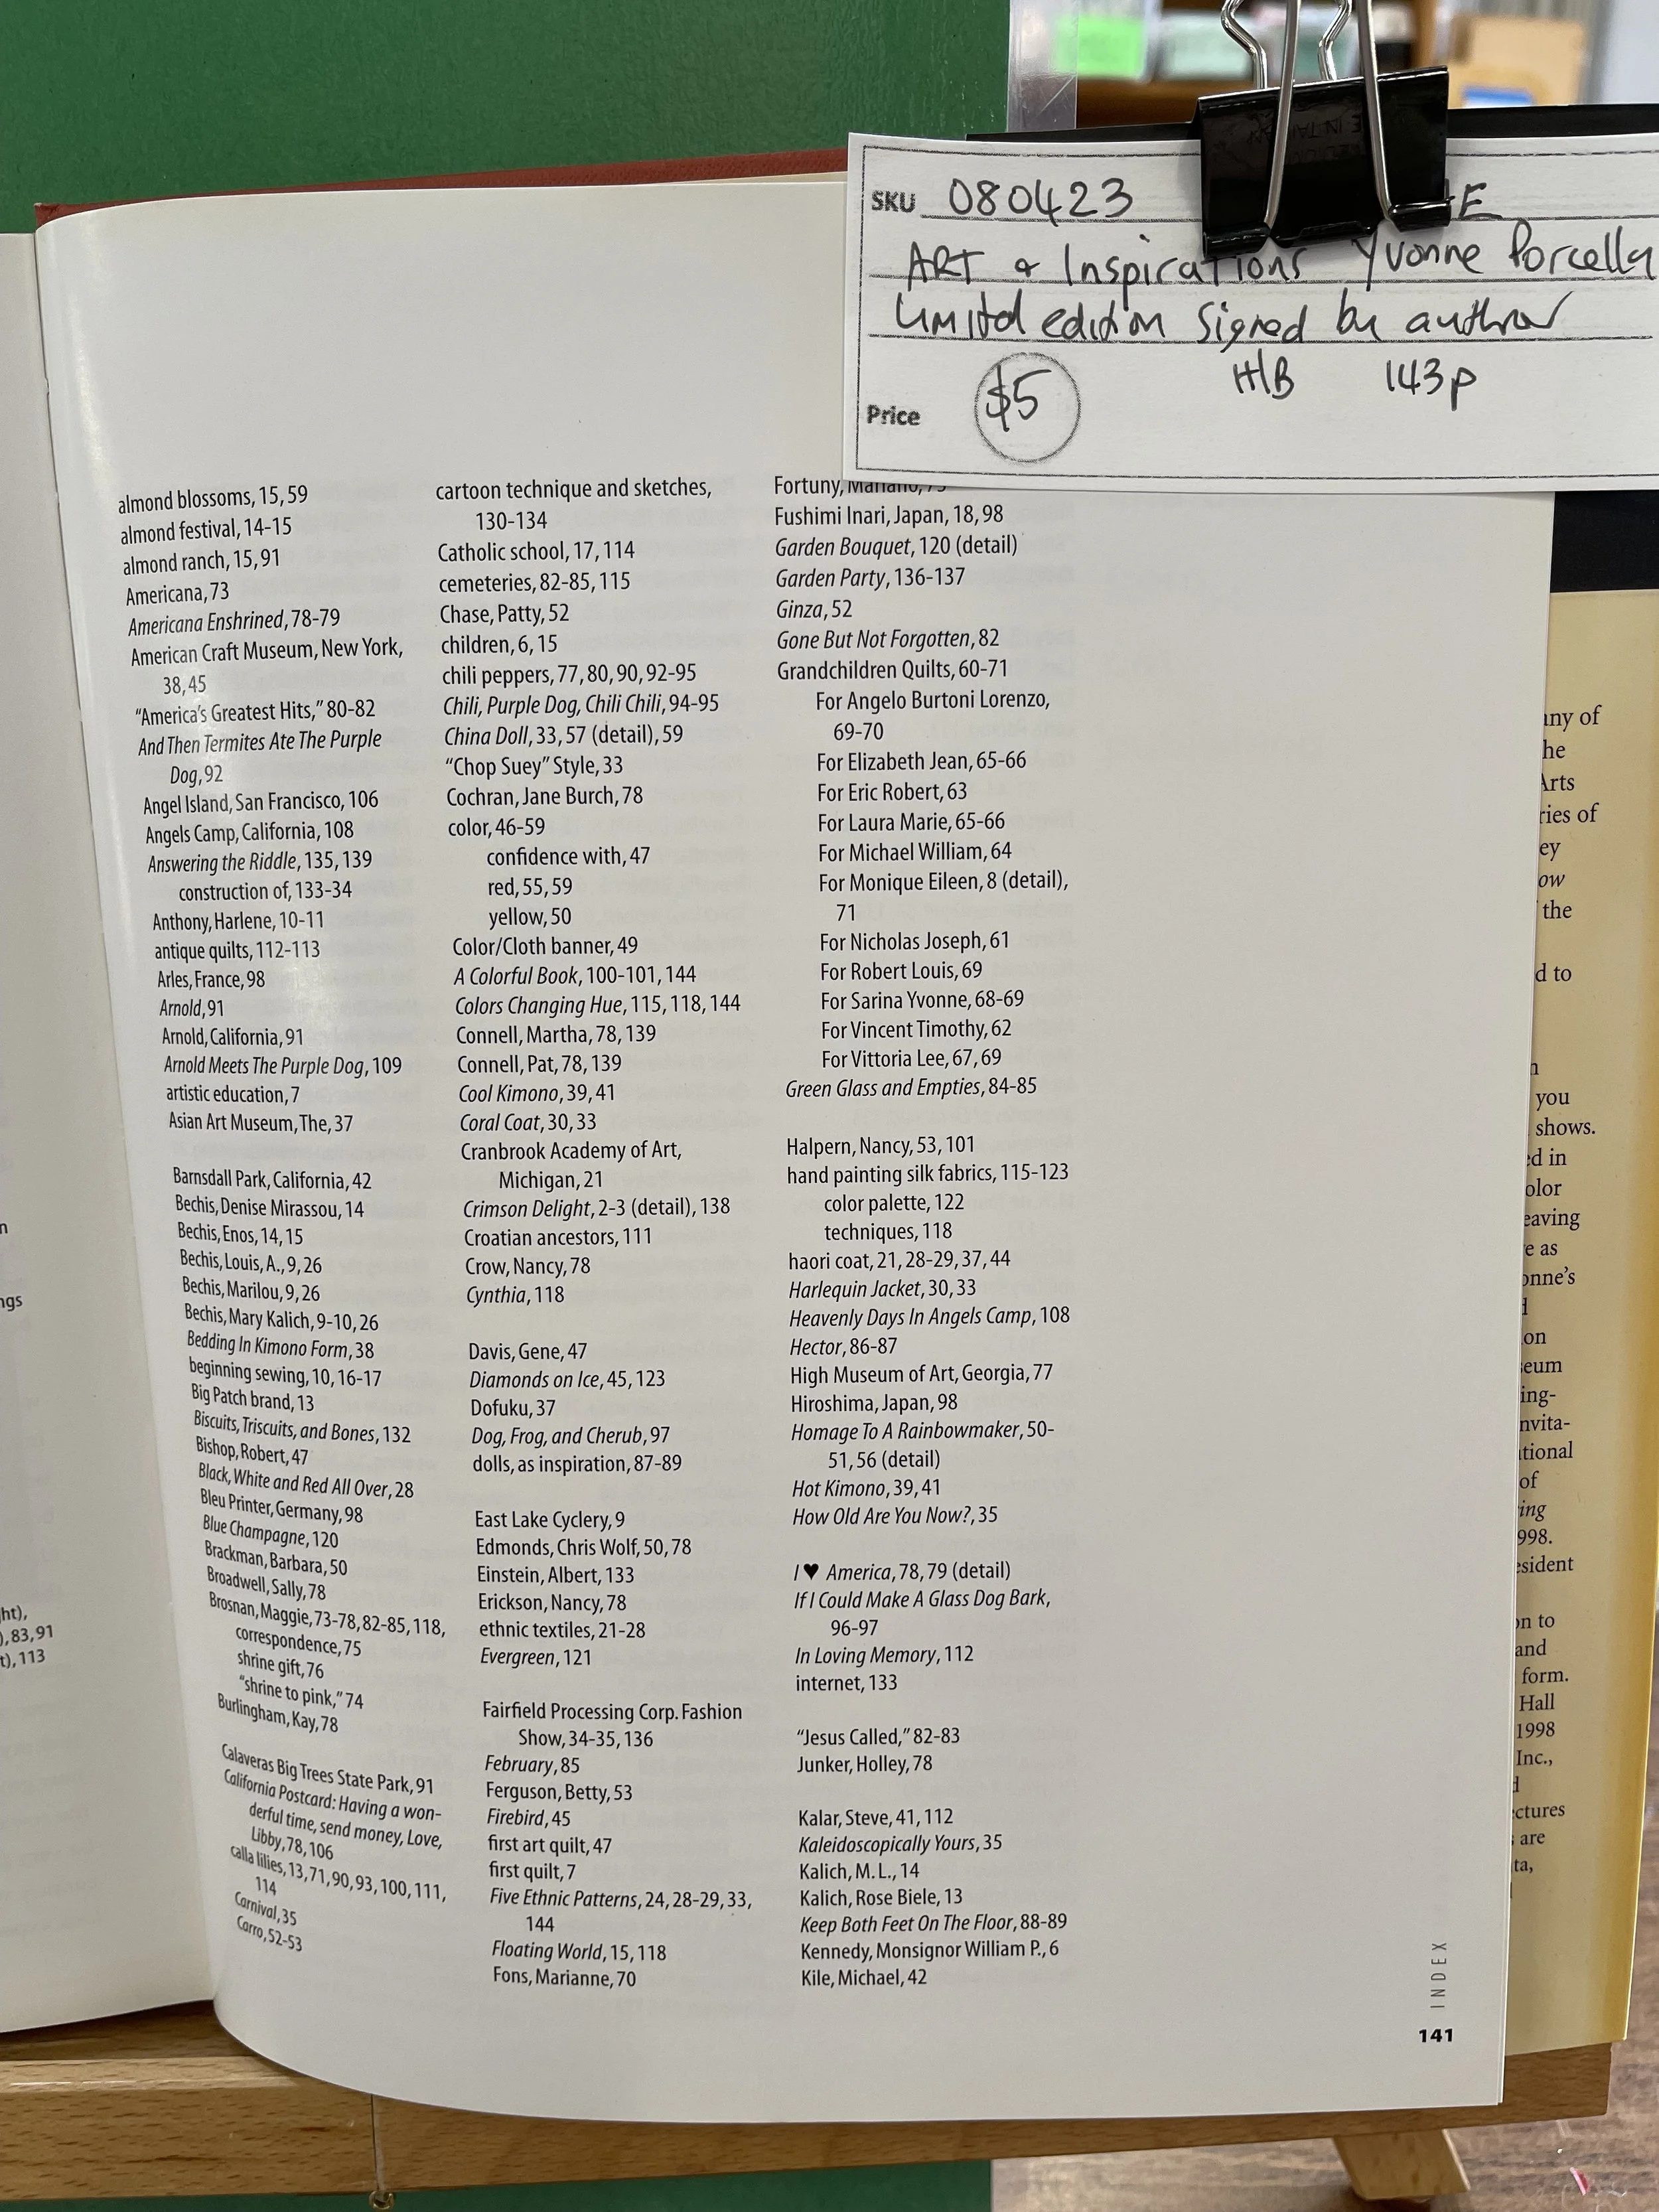 SKU 080423 E
ART & Inspirations Yvonne Porcella
Limited edition Signed by author
H/B 143p
Price $5
almond blossoms, 15, 59
almond festival, 14-15
almond ranch, 15, 91
Americana, 73
Americana Enshrined, 78-79
American Craft Museum, New York,
38, 45
“America’s Greatest Hits,” 80-82
And Then Termites Ate The Purple
Dog, 92
Angel Island, San Francisco, 106
Angels Camp, California, 108
Answering the Riddle, 135, 139
construction of, 133-34
Anthony, Harlene, 10-11
antique quilts, 112-113
Arles, France, 98
Arnold, 91
Arnold, California, 91
Arnold Meets The Purple Dog, 109
artistic education, 7
Asian Art Museum, The, 37
Barnsdall Park, California, 42
Bechis, Denise Mirassou, 14
Bechis, Enos, 14, 15
Bechis, Louis, A., 9, 26
Bechis, Marilou, 9, 26
Bechis, Mary Kalich, 9-10, 26
Bedding In Kimono Form, 38
beginning sewing, 10, 16-17
Big Patch brand, 13
Biscuits, Triscuits, and Bones, 132
Bishop, Robert, 47
Black, White and Red All Over, 28
Bleu Printer, Germany, 98
Blue Champagne, 120
Brackman, Barbara, 50
Broadwell, Sally, 78
Brosnan, Maggie, 73-78, 82-85, 118,
correspondence, 75
shrine gift, 76
“shrine to pink,” 74
Burlingham, Kay, 78
Calaveras Big Trees State Park, 91
California Postcard: Having a won-
derful time, send money, Love,
Libby, 78, 106
calla lilies, 13, 71, 90, 93, 100, 111,
114
Carnival, 35
Carro, 52-53
cartoon technique and sketches,
130-134
Catholic school, 17, 114
cemeteries, 82-85, 115
Chase, Patty, 52
children, 6, 15
chili peppers, 77, 80, 90, 92-95
Chili, Purple Dog, Chili Chili, 94-95
China Doll, 33, 57 (detail), 59
“Chop Suey” Style, 33
Cochran, Jane Burch, 78
color, 46-59
confidence with, 47
red, 55, 59
yellow, 50
Color/Cloth banner, 49
A Colorful Book, 100-101, 144
Colors Changing Hue, 115, 118, 144
Connell, Martha, 78, 139
Connell, Pat, 78, 139
Cool Kimono, 39, 41
Coral Coat, 30, 33
Cranbrook Academy of Art,
Michigan, 21
Crimson Delight, 2-3 (detail), 138
Croatian ancestors, 111
Crow, Nancy, 78
Cynthia, 118
Davis, Gene, 47
Diamonds on Ice, 45, 123
Dofuku, 37
Dog, Frog, and Cherub, 97
dolls, as inspiration, 87-89
East Lake Cyclery, 9
Edmonds, Chris Wolf, 50, 78
Einstein, Albert, 133
Erickson, Nancy, 78
ethnic textiles, 21-28
Evergreen, 121
Fairfield Processing Corp. Fashion
Show, 34-35, 136
February, 85
Ferguson, Betty, 53
Firebird, 45
first art quilt, 47
first quilt, 7
Five Ethnic Patterns, 24, 28-29, 33,
144
Floating World, 15, 118
Fons, Marianne, 70
Fortuny,
Fushimi Inari, Japan, 18, 98
Garden Bouquet, 120 (detail)
Garden Party, 136-137
Ginza, 52
Gone But Not Forgotten, 82
Grandchildren Quilts, 60-71
For Angelo Burtoni Lorenzo,
69-70
For Elizabeth Jean, 65-66
For Eric Robert, 63
For Laura Marie, 65-66
For Michael William, 64
For Monique Eileen, 8 (detail),
71
For Nicholas Joseph, 61
For Robert Louis, 69
For Sarina Yvonne, 68-69
For Vincent Timothy, 62
For Vittoria Lee, 67, 69
Green Glass and Empties, 84-85
Halpern, Nancy, 53, 101
hand painting silk fabrics, 115-123
color palette, 122
techniques, 118
haori coat, 21, 28-29, 37, 44
Harlequin Jacket, 30, 33
Heavenly Days In Angels Camp, 108
Hector, 86-87
High Museum of Art, Georgia, 77
Hiroshima, Japan, 98
Homage To A Rainbowmaker, 50-
51, 56 (detail)
Hot Kimono, 39, 41
How Old Are You Now?, 35
I ♥ America, 78, 79 (detail)
If I Could Make A Glass Dog Bark,
96-97
In Loving Memory, 112
internet, 133
“Jesus Called,” 82-83
Junker, Holley, 78
Kalar, Steve, 41, 112
Kaleidoscopically Yours, 35
Kalich, M. L., 14
Kalich, Rose Biele, 13
Keep Both Feet On The Floor, 88-89
Kennedy, Monsignor William P., 6
Kile, Michael, 42
INDEX
141